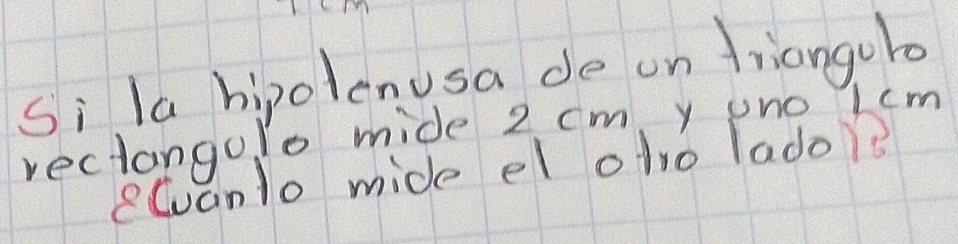 Si la hipotenusa de un triangulo
rectangulo mide 2 cm y uno 1cm
¿Cuanto mide el otro lado?